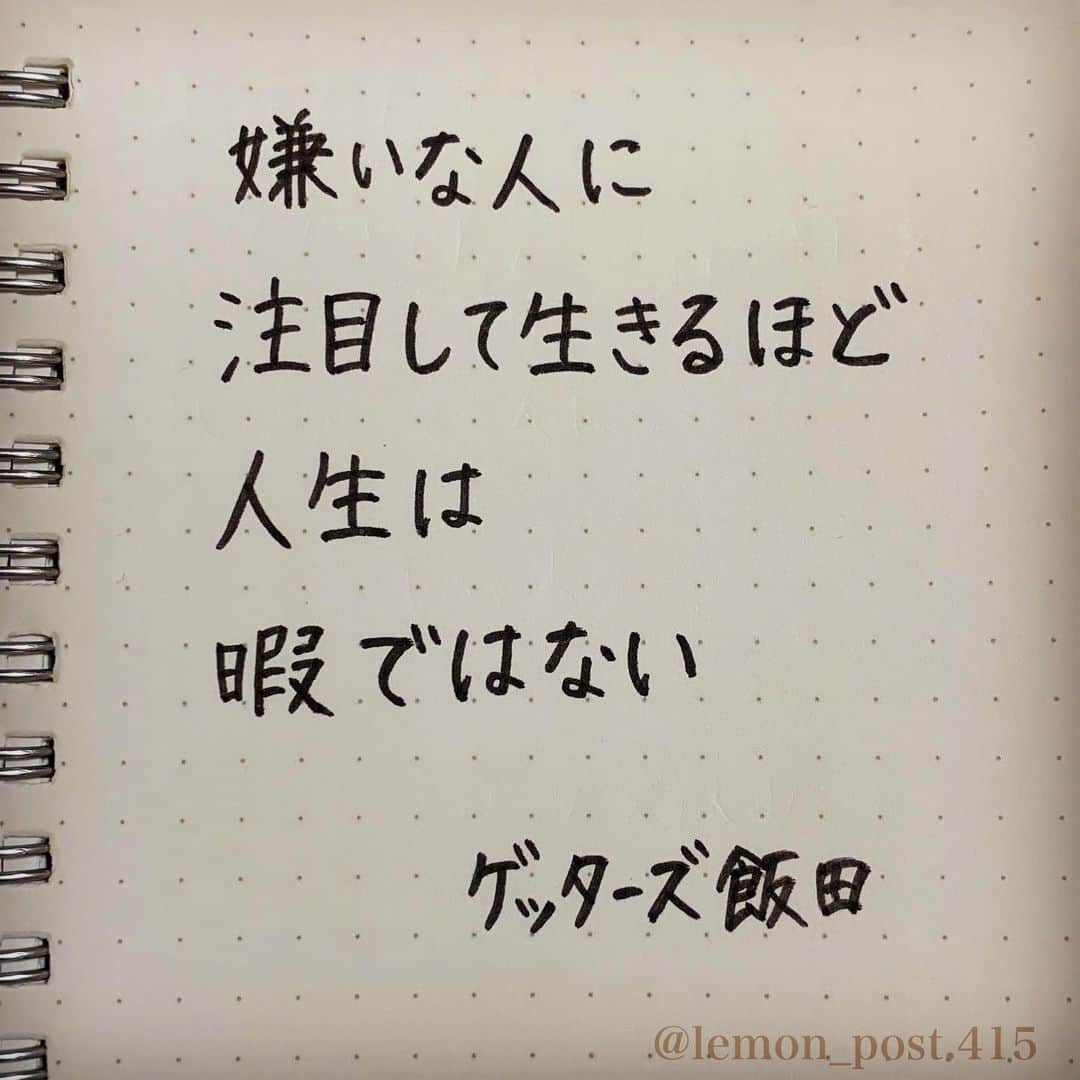 嫌いな人に
注目して生きるほど
人生は
暇ではない
ゲッターズ飯田
@lemon_post.415